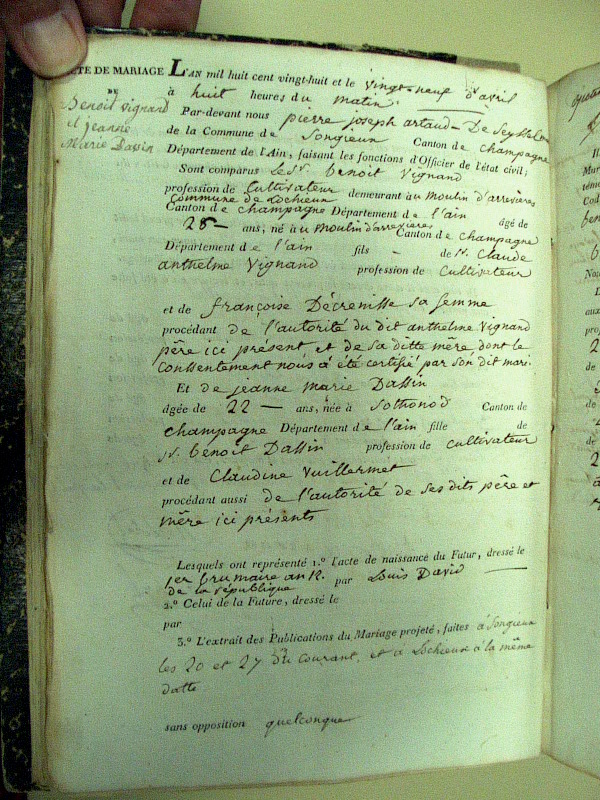 ACTE DE MARIAGE L'AN mil huit cent vingt-huit et le vingt neuf d'avril
DE
Benoit Vignand
et jeanne
Marie Dassin
à huit heures du matin
Par-devant nous pierre joseph artaud - De Seyssel
de la Commune de Songieux Canton de champagne
Département de l'Ain, faisant les fonctions d'Officier de l'état civil;
Sont comparus le Sr. benoit Vignand
profession de Cultivateur demeurant au moulin d'arvieres
Commune de Lochieux
Canton de champagne Département de l'ain âgé de
28 - ans, né au moulin d'arvieres Canton de champagne
Département de l'ain fils - de Sr. Claude
anthelme Vignand profession de Cultivateur
et de françoise Décrenisse sa femme
procédant de l'autorité du dit anthelme Vignand
père ici présent et de sa ditte mère dont le
Consentement nous a été certifié par son dit mari.
Et de jeanne Marie Dassin
âgée de 22 - ans, née à Sothonod Canton de
champagne Département de l'ain fille de
Sr. benoit Dassin profession de Cultivateur
et de Claudine Vuillermet
procédant aussi de l'autorité de ses dits père et
mère ici présents
Lesquels ont représenté 1.º l'acte de naissance du Futur, dressé le
1er brumaire an 12. par Louis David
de la république
2.º Celui de la Future, dressé le
par
3.º L'extrait des Publications du Mariage projeté, faites à Songieux
les 20 et 27 du Courant, et à Lochieux à la même
datte
sans opposition quelconque